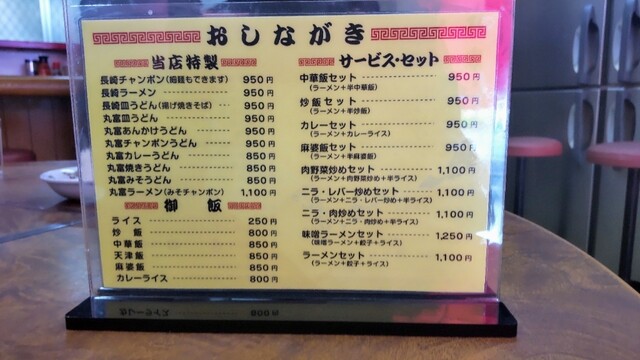 おしながき
当店特製
長崎チャンポン(細麺もできます) 950円
長崎ラーメン 950円
長崎皿うどん(揚げ焼きそば) 950円
丸富皿うどん 950円
丸富あんかけうどん 950円
丸富チャンポンうどん 950円
丸富カレーうどん 850円
丸富焼きうどん 850円
丸富みそうどん 850円
丸富ラーメン(みそチャンポン) 1,100円
御飯
ライス 250円
炒飯 800円
中華飯 850円
天津飯 850円
麻婆飯 850円
カレーライス 800円
サービス・セット
中華飯セット 950円
(ラーメン+半中華飯)
炒飯セット 950円
(ラーメン+半炒飯)
カレーセット 950円
(ラーメン+カレーライス)
麻婆飯セット 950円
(ラーメン+半麻婆飯)
肉野菜炒めセット 1,100円
(ラーメン+肉野菜炒め+半ライス)
ニラ・レバー炒めセット 1,100円
(ラーメン+ニラ・レバー炒め+半ライス)
ニラ・肉炒めセット 1,100円
(ラーメン+ニラ・肉炒め+半ライス)
味噌ラーメンセット 1,250円
(味噌ラーメン+餃子+ライス)
ラーメンセット 1,100円
(ラーメン+餃子+ライス)